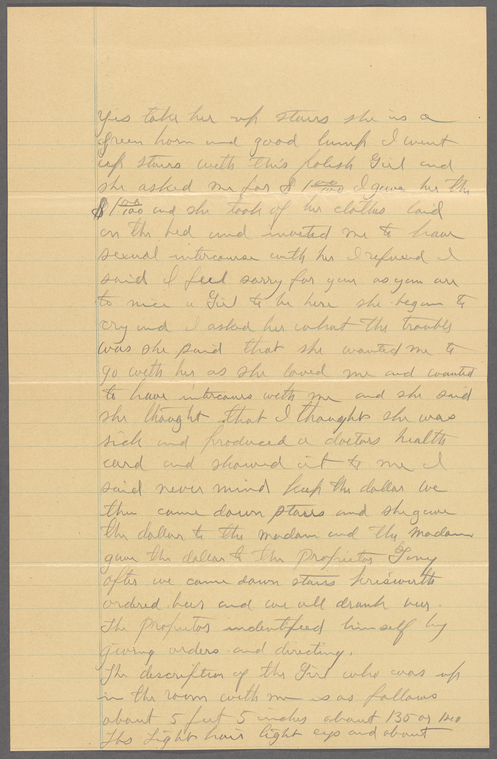 Yes take her up stairs she is a
green horn and good lump I went
up stairs with this polish Girl and
she asked me for $1 00/100 I gave her the
$1 00/100 and she took of her clothes laid
on the bed and invited me to have
sexual intercourse with her I refused I
said I feel sorry for you as you are
to nice a Girl to be here she began to
cry and I asked her what the trouble
was she said that she wanted me to
go with her as she loved me and wanted
to have intercours with me and she said
she thought that I thought she was
sick and produced a doctors health
card and showed it to me I
said never mind keep the dollar we
then came down stairs and she gave
the dollar to the madam and the madam
gave the dollar to the Proprietor Tony
after we came down stairs
ordered beer and we all drank beer.
The Proprietor indentifeed himself by
giving orders and directing.
The description of the Girl who was up
in the room with me is as follows
about 5 feet 5 inches about 130 or 140
lbs Light hair light eyes and about